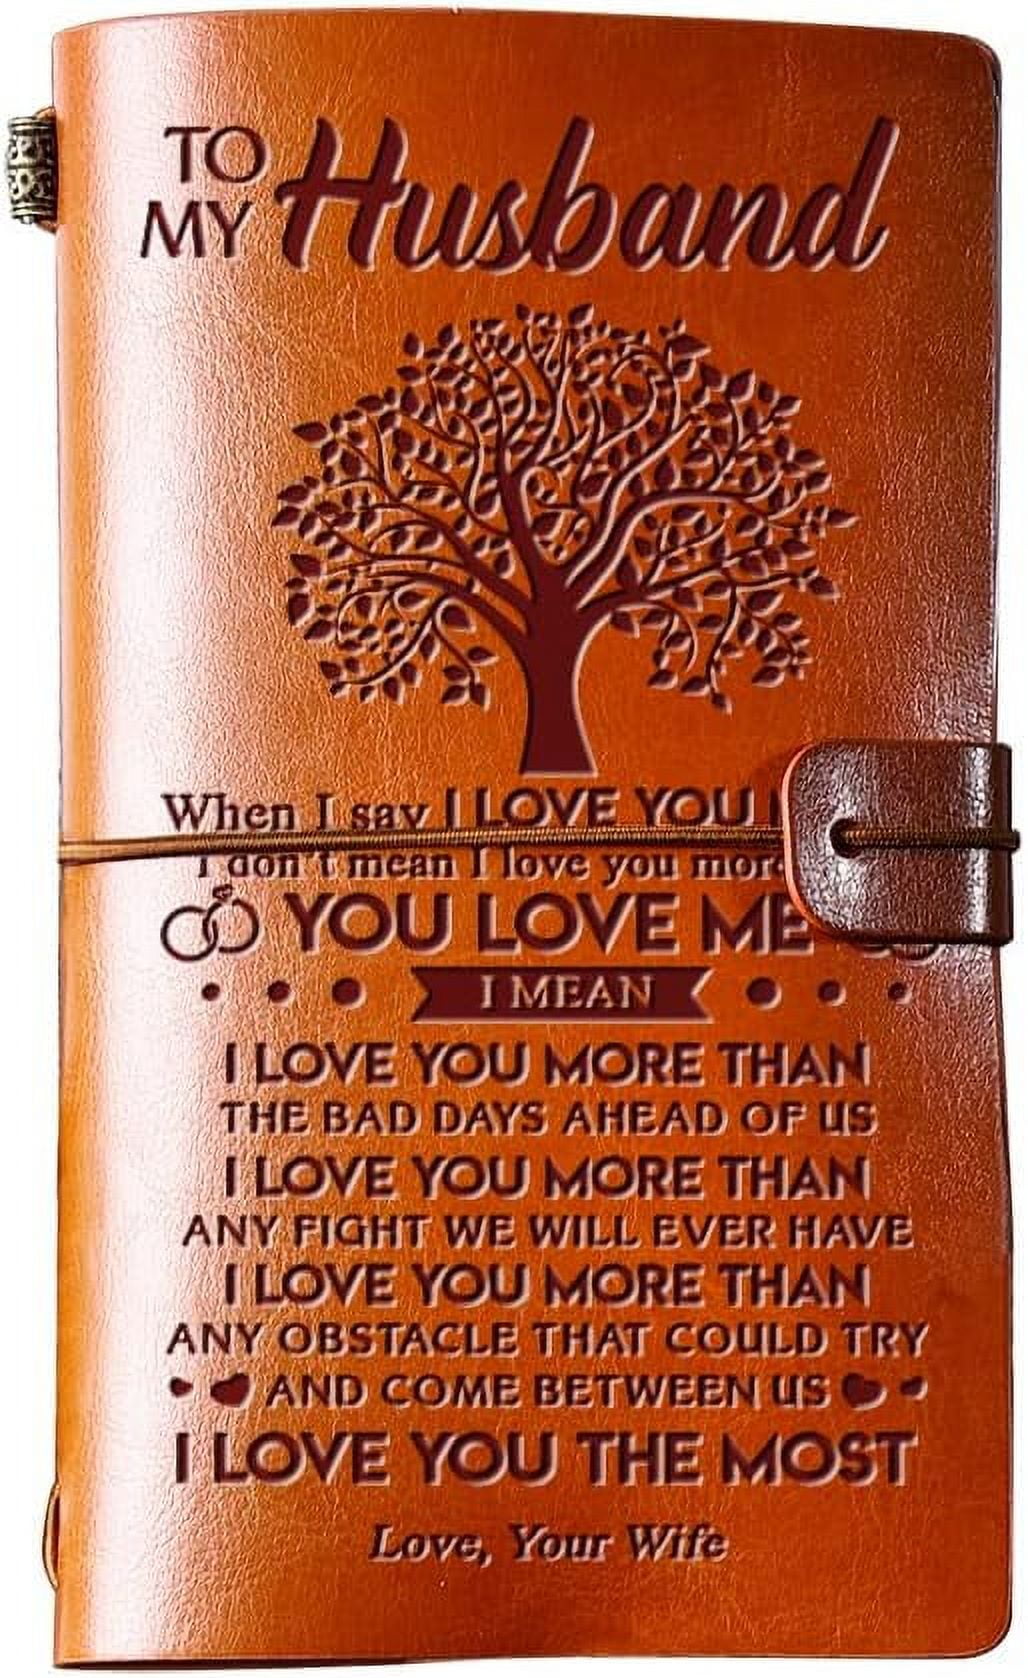 TO
MY Husband
When I say I LOVE YOU
I don't mean I love you more
YOU LOVE ME
I MEAN
I LOVE YOU MORE THAN
THE BAD DAYS AHEAD OF US
I LOVE YOU MORE THAN
ANY FIGHT WE WILL EVER HAVE
I LOVE YOU MORE THAN
ANY OBSTACLE THAT COULD TRY
AND COME BETWEEN US
I LOVE YOU THE MOST
Love, Your Wife